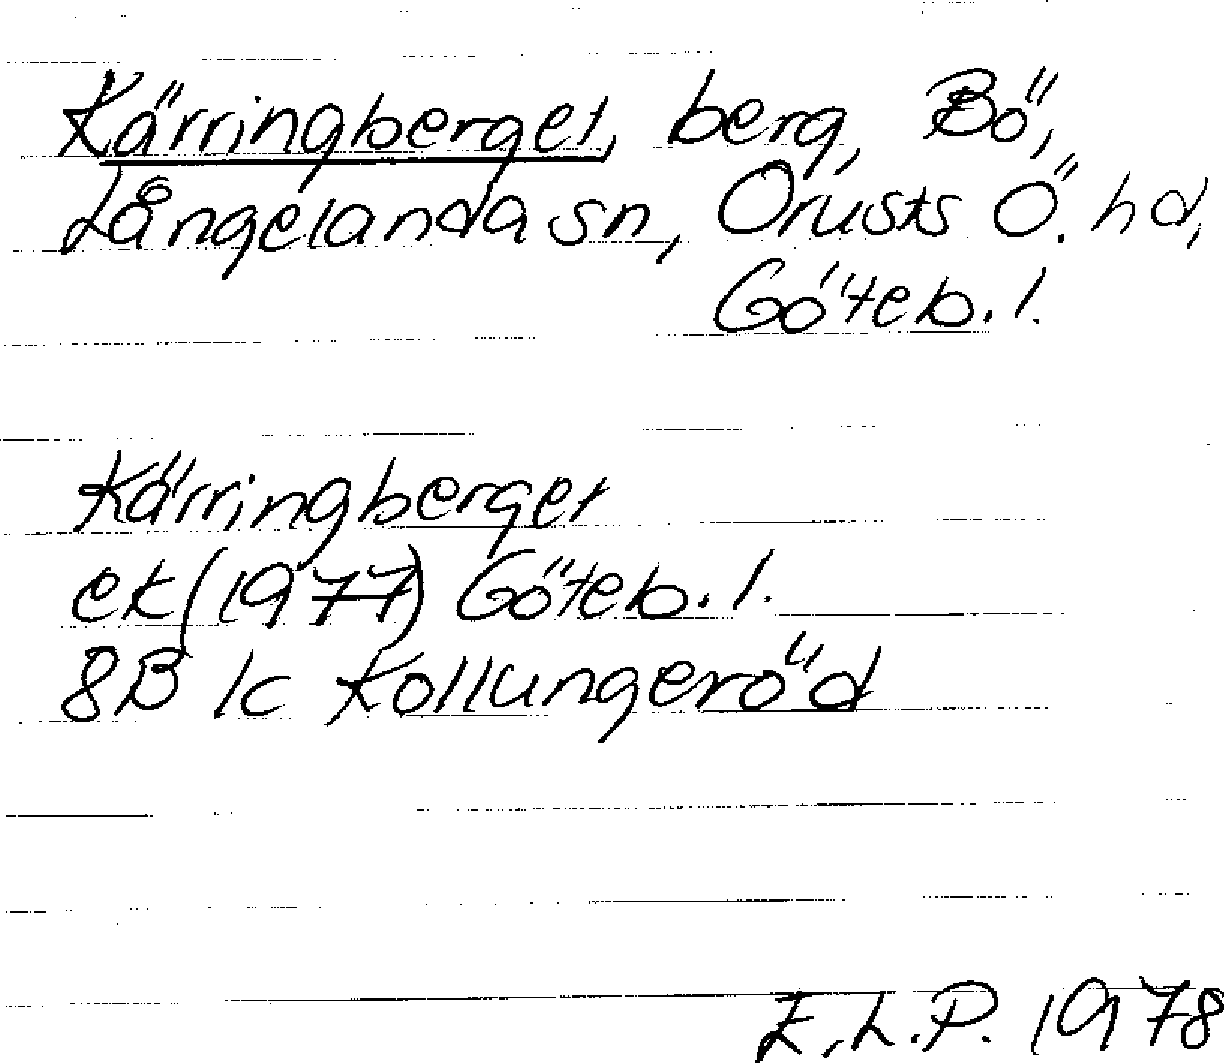 Kärringberget, berg, Bö,
Långelanda sn, Orusts Ö. hd,
Göteb. l.
Kärringberget
ek (1977) Göteb. l.
8B 1c Kollungeröd
E.L.P. 1978